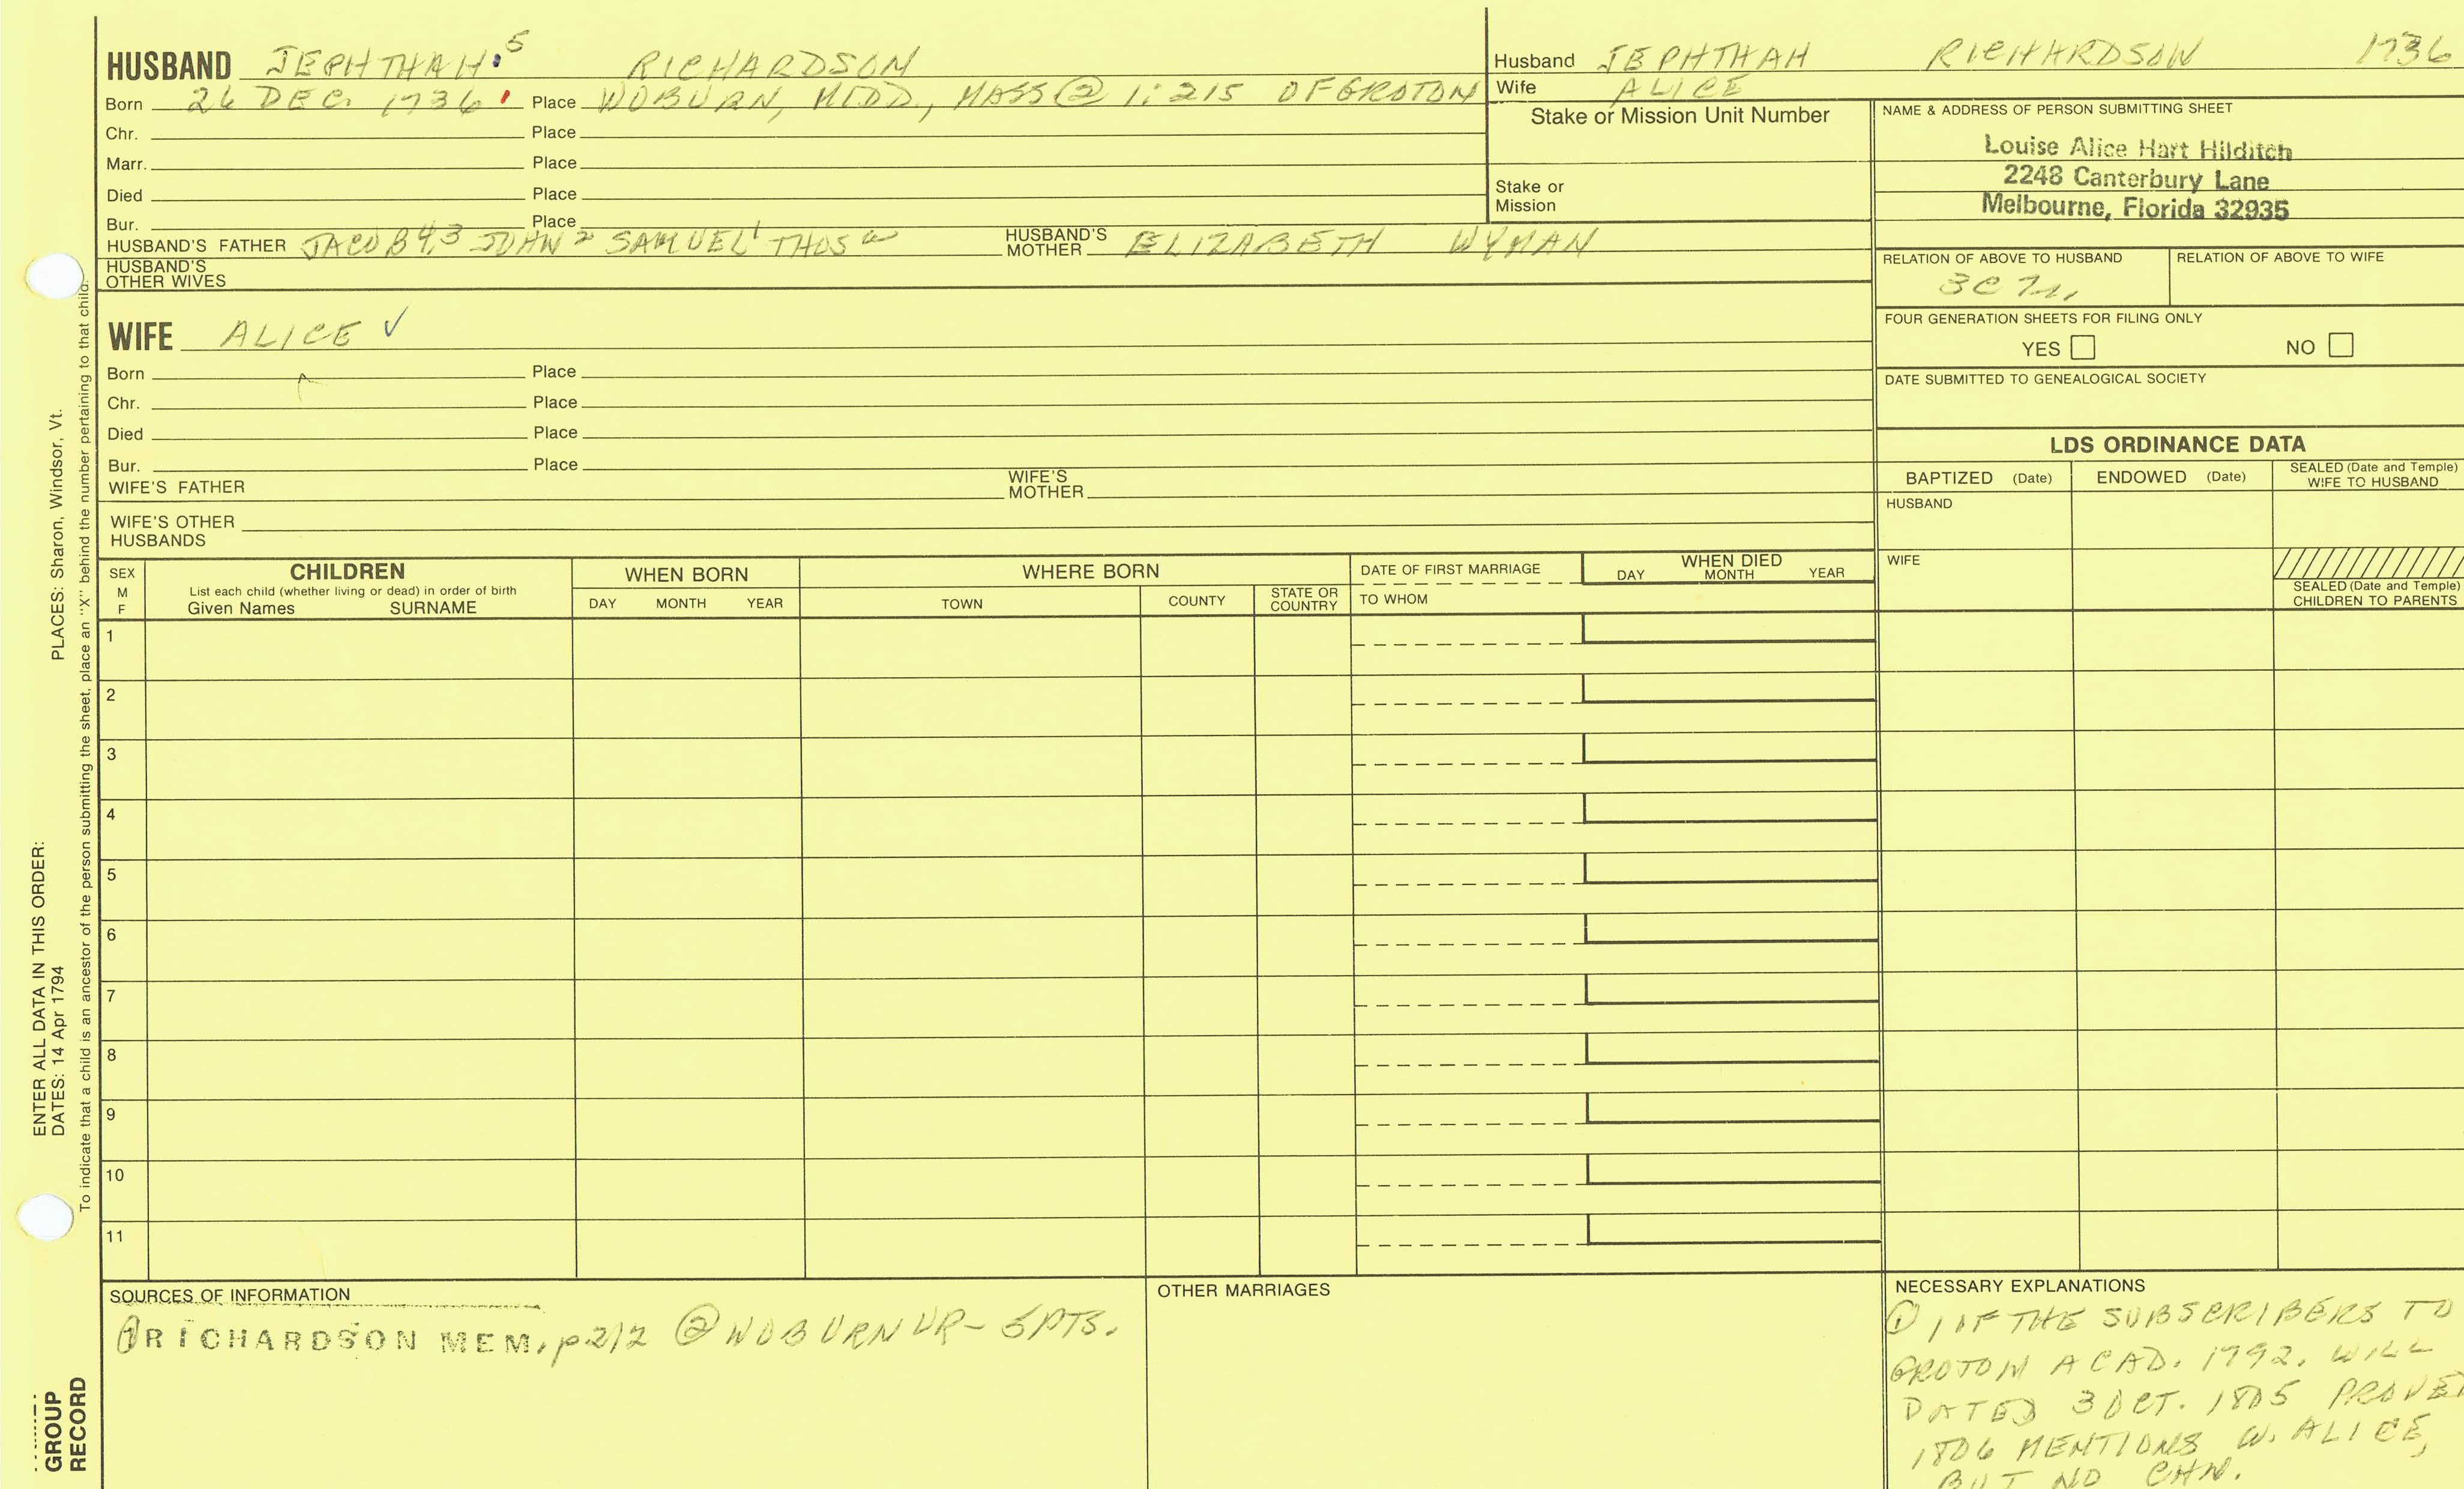 HUSBAND JEPHTHAH 5 RICHARDSON
Born 26 DEC. 1736 Place WOBURN, MIDD, MASS @ 1:215 OF GROTON
Chr. Place
Marr. Place
Died Place
Bur. Place
HUSBAND'S FATHER JACOB 4,3 JOHN 2 SAMUEL 1 THOS a HUSBAND'S MOTHER ELIZABETH WYMAN
HUSBAND'S OTHER WIVES
Husband JEPHTHAH RICHARDSON 1736
Wife ALICE
Stake or Mission Unit Number
Stake or Mission
NAME & ADDRESS OF PERSON SUBMITTING SHEET
Louise Alice Hart Hilditch
2248 Canterbury Lane
Melbourne, Florida 32935
RELATION OF ABOVE TO HUSBAND RELATION OF ABOVE TO WIFE
3C
FOUR GENERATION SHEETS FOR FILING ONLY
YES NO
DATE SUBMITTED TO GENEALOGICAL SOCIETY
WIFE ALICE ✓
Born Place
Chr. Place
Died Place
Bur. Place
WIFE'S FATHER WIFE'S MOTHER
WIFE'S OTHER HUSBANDS
LDS ORDINANCE DATA
BAPTIZED (Date) ENDOWED (Date) SEALED (Date and Temple) WIFE TO HUSBAND
HUSBAND
WIFE
SEALED (Date and Temple) CHILDREN TO PARENTS
SEX M F
CHILDREN
List each child (whether living or dead) in order of birth
Given Names SURNAME
WHEN BORN
DAY MONTH YEAR
WHERE BORN
TOWN COUNTY STATE OR COUNTRY
DATE OF FIRST MARRIAGE
TO WHOM
WHEN DIED
DAY MONTH YEAR
1
2
3
4
5
6
7
8
9
10
11
SOURCES OF INFORMATION
① RICHARDSON MEM, p 212 @ WOBURN VR - 5 PTS.
OTHER MARRIAGES
NECESSARY EXPLANATIONS
① 1 OF THE SUBSCRIBERS TO
GROTON ACAD. 1792. WILL
DATED 3 OCT. 1805 PROVED
1806 MENTIONS W. ALICE,
BUT NO CHN.
PLACES: Sharon, Windsor, Vt.
To indicate that a child is an ancestor of the person submitting the sheet, place an "X" behind the number pertaining to that child.
ENTER ALL DATA IN THIS ORDER:
DATES: 14 Apr 1794
GROUP
RECORD